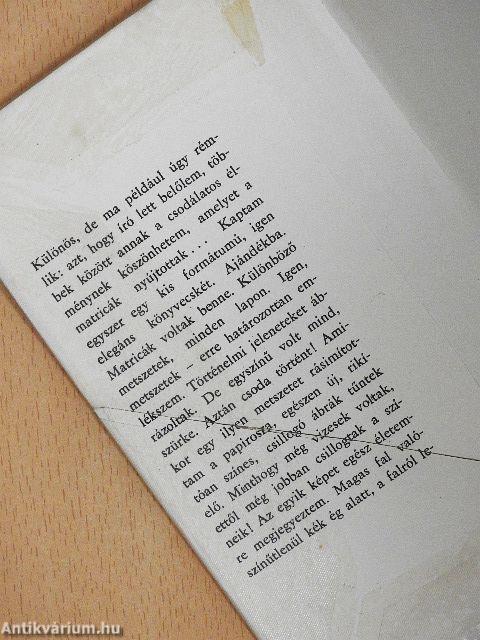 Különös, de ma például úgy rém-
lik: azt, hogy író lett belőlem, töb-
bek között annak a csodálatos él-
ménynek köszönhetem, amelyet a
matricák nyújtottak... Kaptam
egyszer egy kis formátumú, igen
elegáns könyvecskét. Ajándékba.
Matricák voltak benne. Különböző
metszetek, minden lapon. Igen,
metszetek – erre határozottan em-
lékszem. Történelmi jeleneteket áb-
rázoltak. De egyszínű volt mind,
szürke. Aztán csoda történt! Ami-
kor egy ilyen metszetet rásimítot-
tam a papirosra, egészen új, rikí-
tóan színes, csillogó ábrák tűntek
elő. Minthogy még vizesek voltak,
ettől még jobban csillogtak a szí-
neik! Az egyik képet egész életem-
re megjegyeztem. Magas fal való-
színűtlenül kék ég alatt, a falról le-
Antikvárium.hu